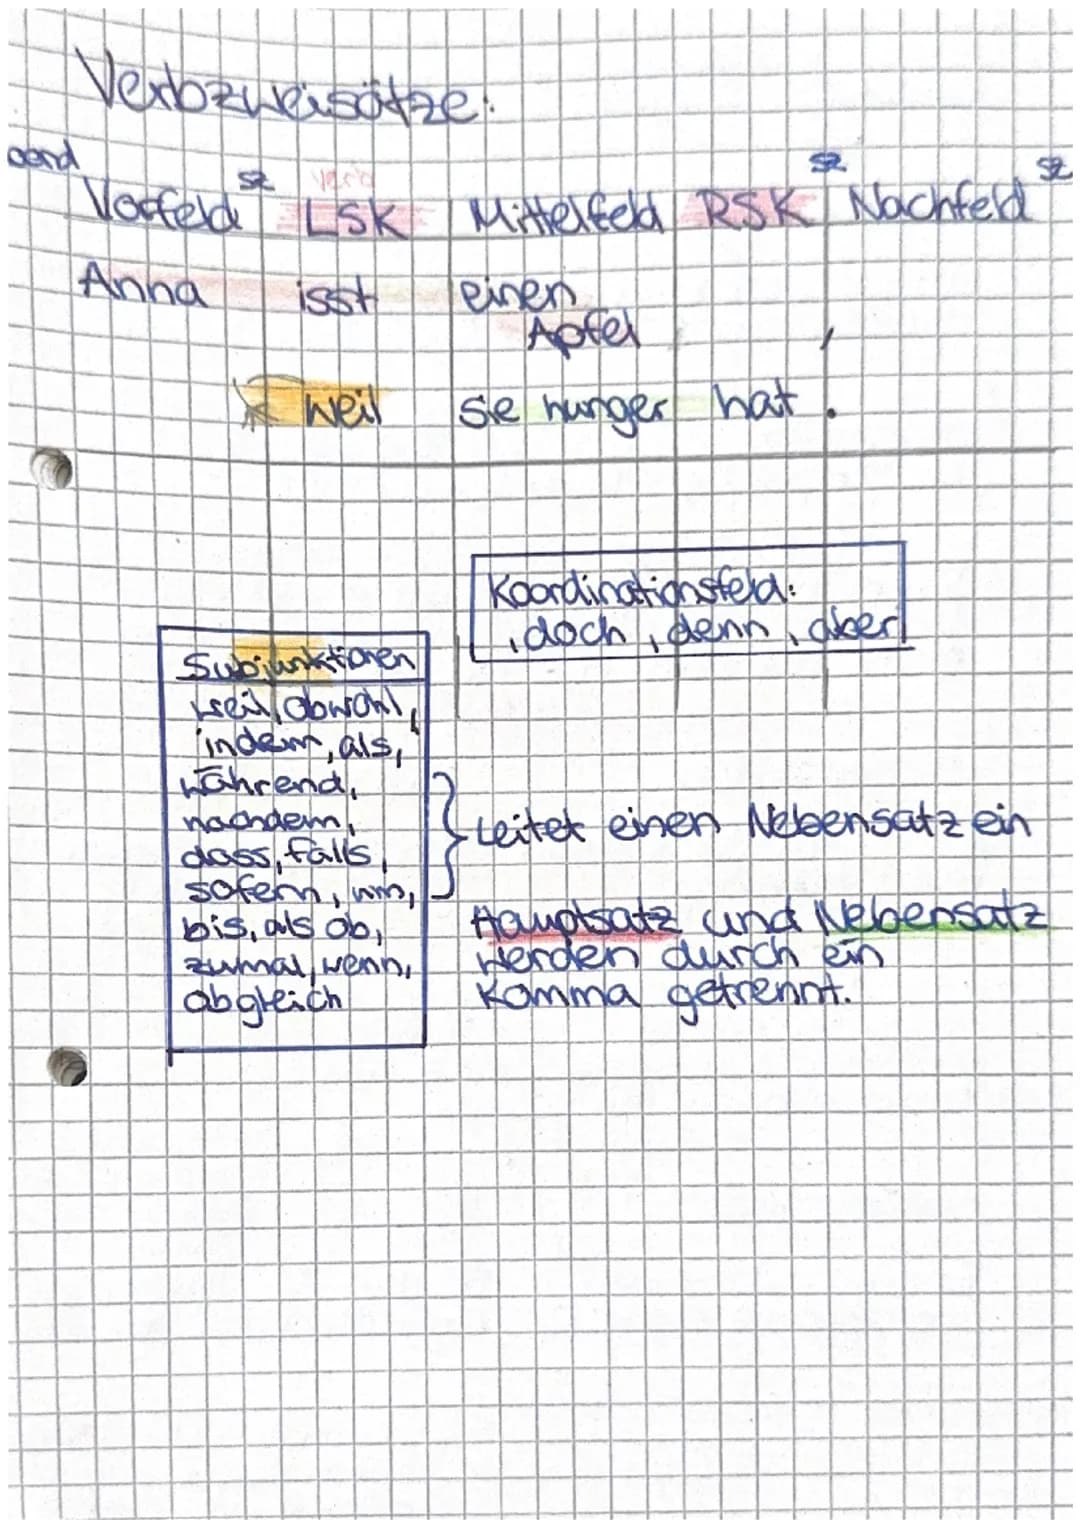 Verbzweisätze:
oord
sz verb sz sz
Vorfeld LSK Mittelfeld RSK Nachfeld
Anna isst einen
Apfel ,
weil sie hunger hat .
Koordinationsfeld:
, doch , denn , aber
Subjunktionen
weil, obwohl,
indem, als,
während,
nachdem,
dass, falls,
sofern, um,
bis, als ob,
zumal, wenn,
obgleich
Leitet einen Nebensatz ein
Hauptsatz und Nebensatz
werden durch ein
Komma getrennt.